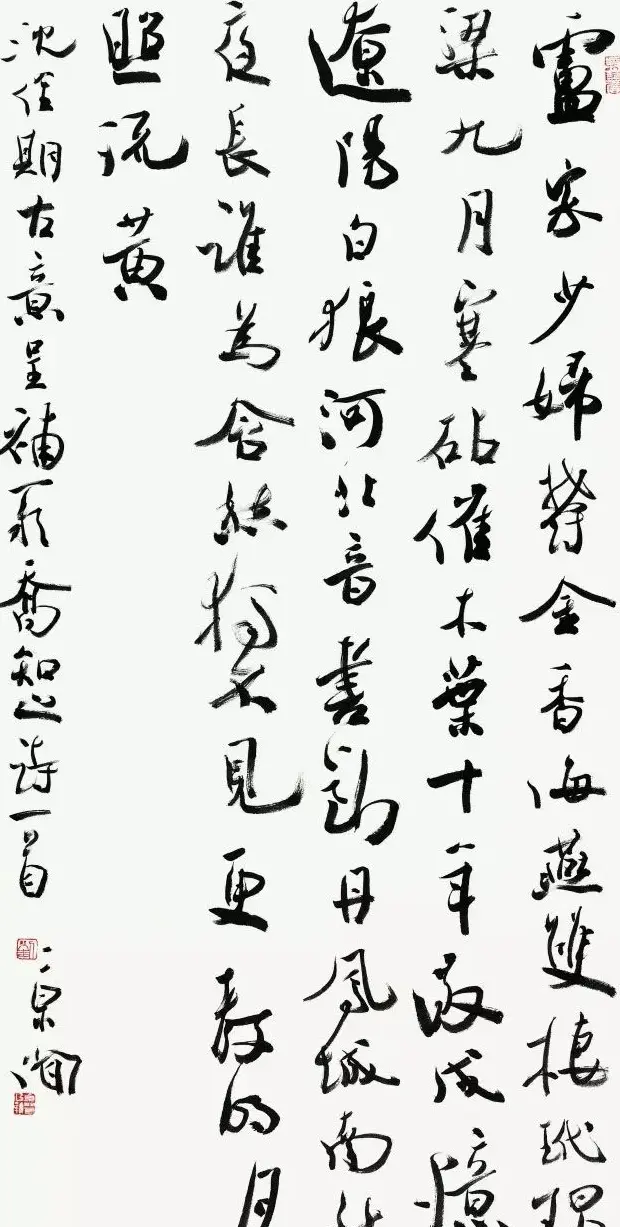 盧家少婦鬱金香海燕雙棲玳瑁
梁九月寒砧催木葉十年徵戍憶
遼陽白狼河北音書斷丹鳳城南秋
夜長誰為含愁獨不見更教明月
照流黃
沈佺期古意呈補闕喬知之詩一首 二泉